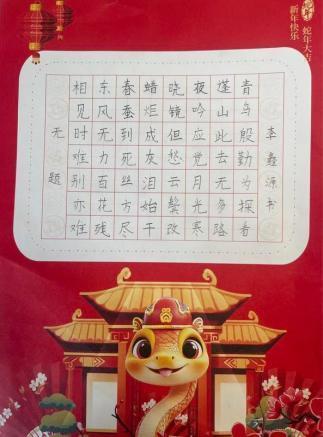 蛇年大吉
新年快乐
无题
相见时难别亦难
东风无力百花残
春蚕到死丝方尽
蜡炬成灰泪始干
晓镜但愁云鬓改
夜吟应觉月光寒
蓬山此去无多路
青鸟殷勤为探看
李鑫源书